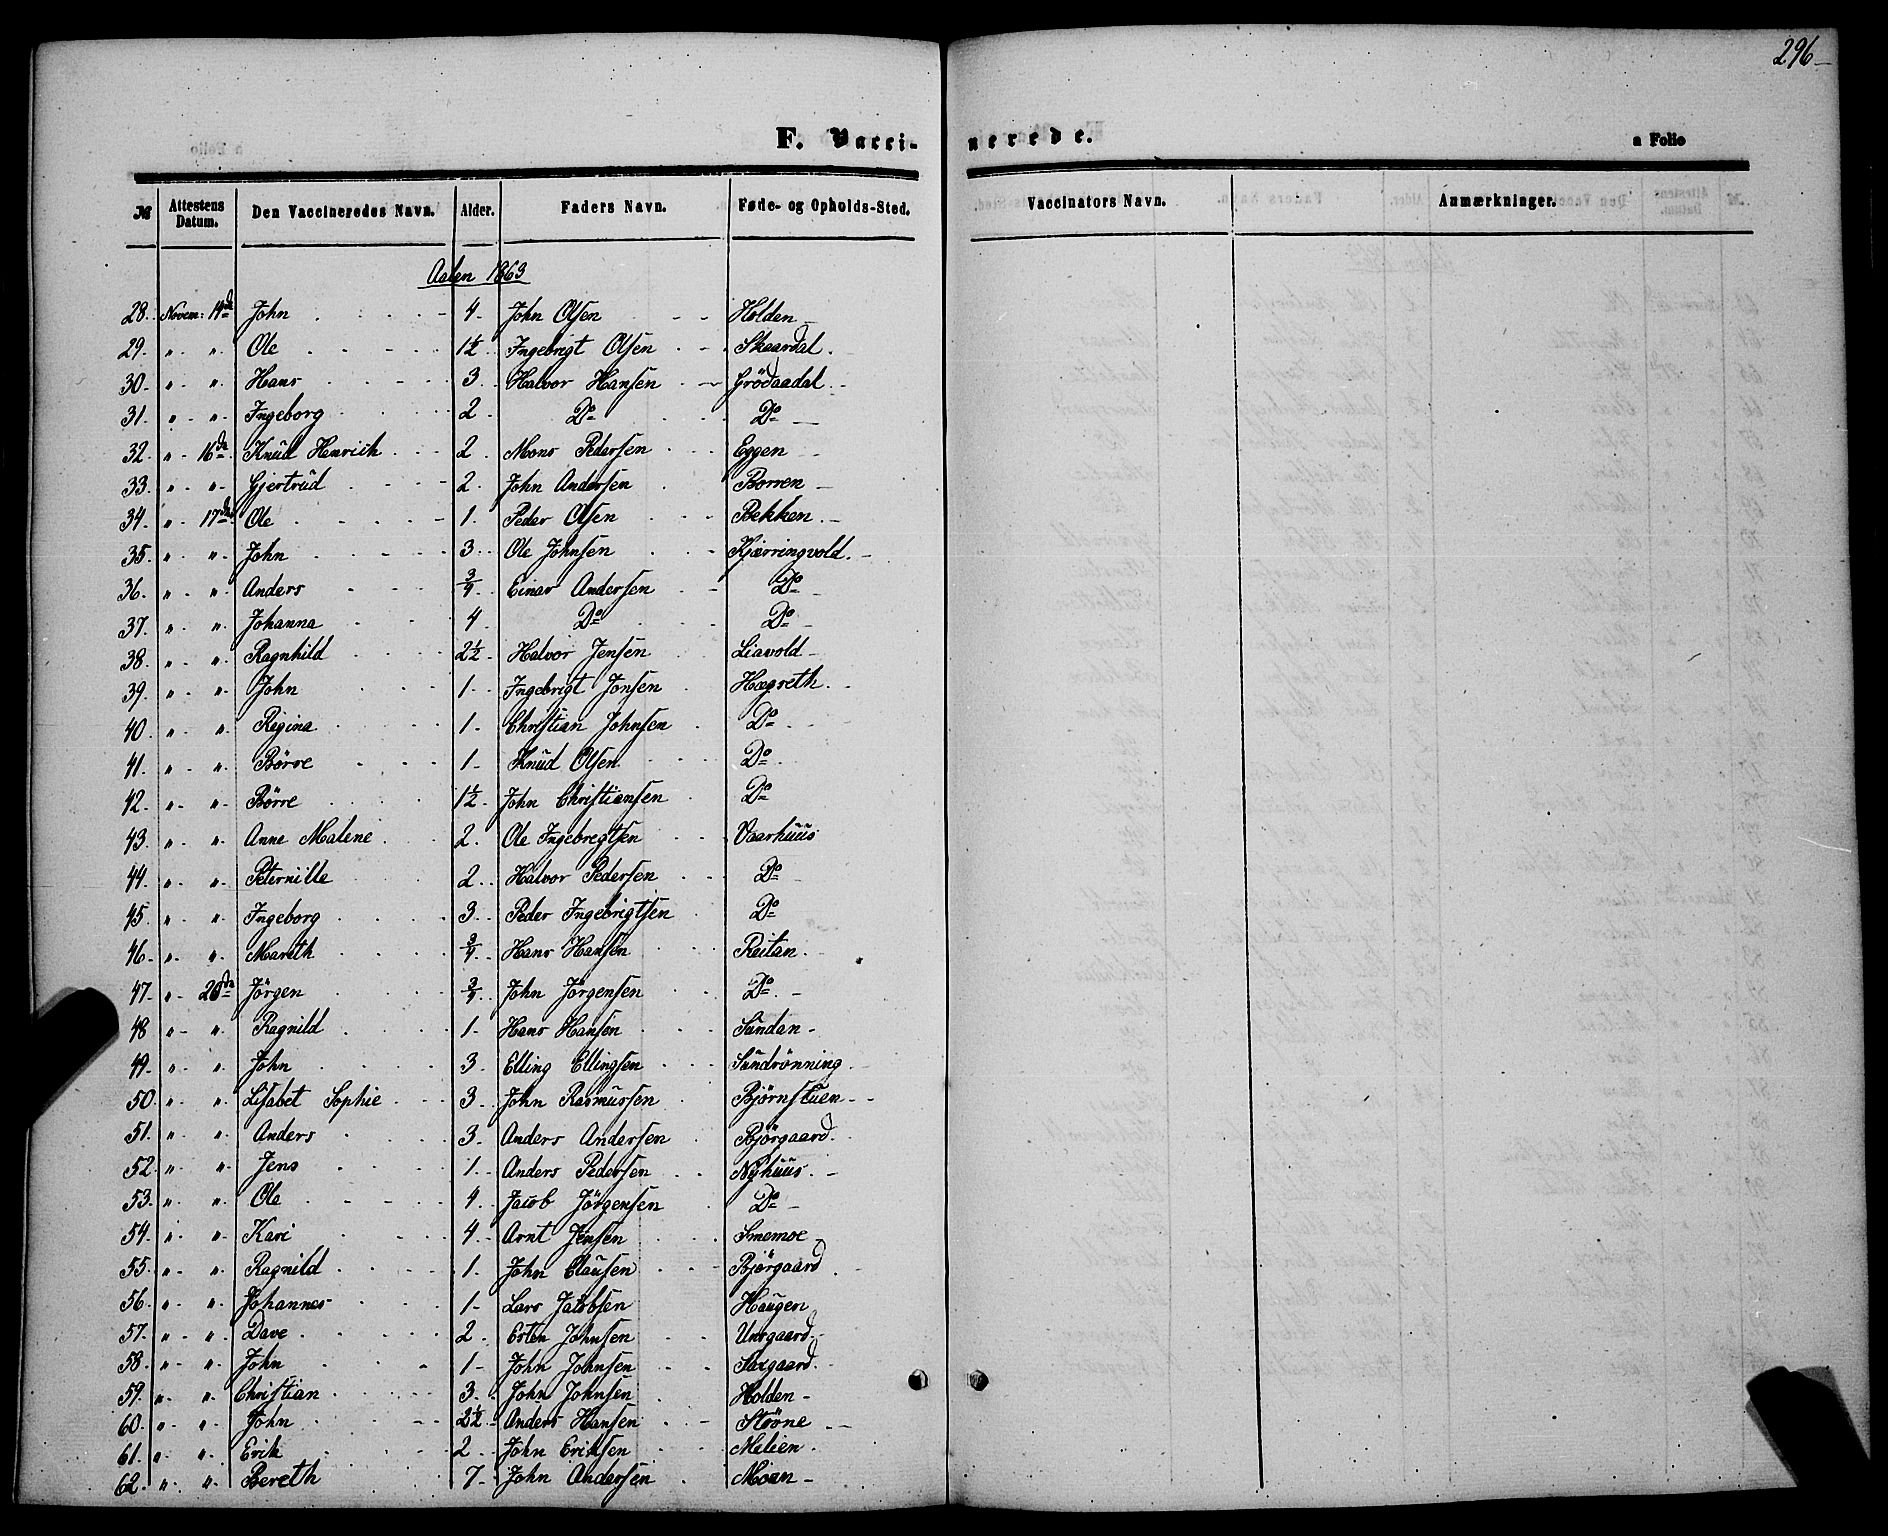 296
F. Vaccinerede.
a Folio
№ Attestens Datum. Den Vaccineredes Navn. Alder. Faders Navn. Føde- og Opholds-Sted. Vaccinators Navn. Anmærkninger.
Aalen 1863
28. Novem: 14de John 4 John Olsen Holden
29. " " Ole 1½ Ingebrigt Olsen Skaardal
30. " " Hans 3 Halvor Hansen Grödaadal
31. " " Ingeborg 2 Do Do
32. " 16de Knud Henrich 2 Mons Pedersen Eggen
33. " " Gjertrud 2 John Andersen Borren
34. " 17de Ole 1 Peder Olsen Bekken
35. " " John 3 Ole Johnsen Kjærringvold
36. " " Anders ¾ Einar Andersen Do
37. " " Johanna 4 Do Do
38. " " Ragnhild 2½ Halvor Jensen Liavold
39. " " John 1 Ingebrigt Jonsen Hægreth
40. " " Regina 1 Christian Johnsen Do
41. " " Børre 1 Knud Olsen Do
42. " " Börre 1½ John Christiansen Do
43. " " Anne Malene 2 Ole Ingebregtsen Vaarhuus
44. " " Peternille 2 Halvor Pedersen Do
45. " " Ingeborg 3 Peder Ingebrigtsen Do
46. " " Mareth ¾ Hans Hansen Reitan
47. " 20de Jörgen ¾ John Jörgensen Do
48 " " Ragnild 1 Hans Hansen Sundan
49. " " John 3 Elling Ellingsen Sundrönning
50. " " Lisabet Sophie 3 John Rasmussen Bjørnstuen
51. " " Anders 3 Anders Andersen Bjørgaard
52. " " Jens 1 Anders Pedersen Nyhuus
53. " " Ole 4 Jacob Jörgensen Do
54. " " Kari 4 Arnt Jensen Smemoe
55. " " Ragnild 1 John Clausen Bjørgaard
56. " " Johannes 1 Lars Jacobsen Haugen
57. " " Dave 2 Esten Johnsen Unsgaard
58. " " John 1 John Johnsen Saxgaard
59. " " Christian 3 John Johnsen Holden
60. " " John 2½ Anders Hansen Støne
61. " " Erik 2 John Eriksen Melien
62. " " Bereth 7 John Andersen Moan